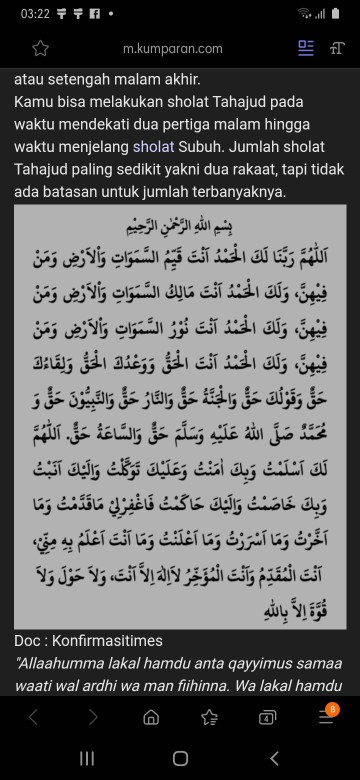 03:22
m.kumparan.com
atau setengah malam akhir.
Kamu bisa melakukan sholat Tahajud pada
waktu mendekati dua pertiga malam hingga
waktu menjelang sholat Subuh. Jumlah sholat
Tahajud paling sedikit yakni dua rakaat, tapi tidak
ada batasan untuk jumlah terbanyaknya.
بِسْمِ اللهِ الرَّحْمٰنِ الرَّحِيْمِ
اَللّٰهُمَّ رَبَّنَا لَكَ الْحَمْدُ اَنْتَ قَيِّمُ السَّمَوَاتِ وَاْلاَرْضِ وَمَنْ
فِيْهِنَّ، وَلَكَ الْحَمْدُ اَنْتَ مَالِكُ السَّمَوَاتِ وَاْلاَرْضِ وَمَنْ
فِيْهِنَّ، وَلَكَ الْحَمْدُ اَنْتَ نُوْرُ السَّمَوَاتِ وَاْلاَرْضِ وَمَنْ
فِيْهِنَّ، وَلَكَ الْحَمْدُ اَنْتَ الْحَقُّ وَوَعْدُكَ الْحَقُّ وَلِقَاءُكَ
حَقٌّ وَقَوْلُكَ حَقٌّ وَالْجَنَّةُ حَقٌّ وَالنَّارُ حَقٌّ وَالنَّبِيُّوْنَ حَقٌّ وَ
مُحَمَّدٌ صَلَّى اللهُ عَلَيْهِ وَسَلَّمَ حَقٌّ وَالسَّاعَةُ حَقٌّ. اَللّٰهُمَّ
لَكَ اَسْلَمْتُ وَبِكَ اٰمَنْتُ وَعَلَيْكَ تَوَكَّلْتُ وَاِلَيْكَ اَنَبْتُ
وَبِكَ خَاصَمْتُ وَاِلَيْكَ حَاكَمْتُ فَاغْفِرْلِيْ مَاقَدَّمْتُ وَمَا
اَخَّرْتُ وَمَا اَسْرَرْتُ وَمَا اَعْلَنْتُ وَمَا اَنْتَ اَعْلَمُ بِهِ مِنِّيْ،
اَنْتَ الْمُقَدِّمُ وَاَنْتَ الْمُؤَخِّرُ لاَاِلٰهَ اِلاَّ اَنْتَ، وَلاَ حَوْلَ وَلاَ
قُوَّةَ اِلاَّ بِاللهِ
Doc : Konfirmasitimes
"Allaahumma lakal hamdu anta qayyimus samaa
waati wal ardhi wa man fiihinna. Wa lakal hamdu
4
8